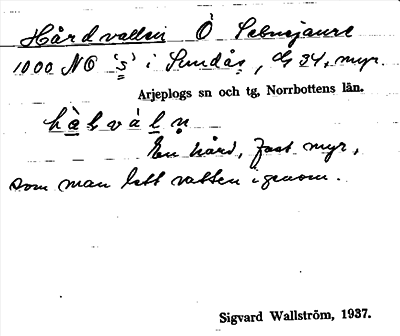 Hårdvallen Ö Sebusjaure
1000 NO 's' i Sundås, G 34, myr.
Arjeplogs sn och tg, Norrbottens län.
hàḷvàḷṇ
En hård, fast myr,
som man lett vatten igenom.
Sigvard Wallström, 1937.